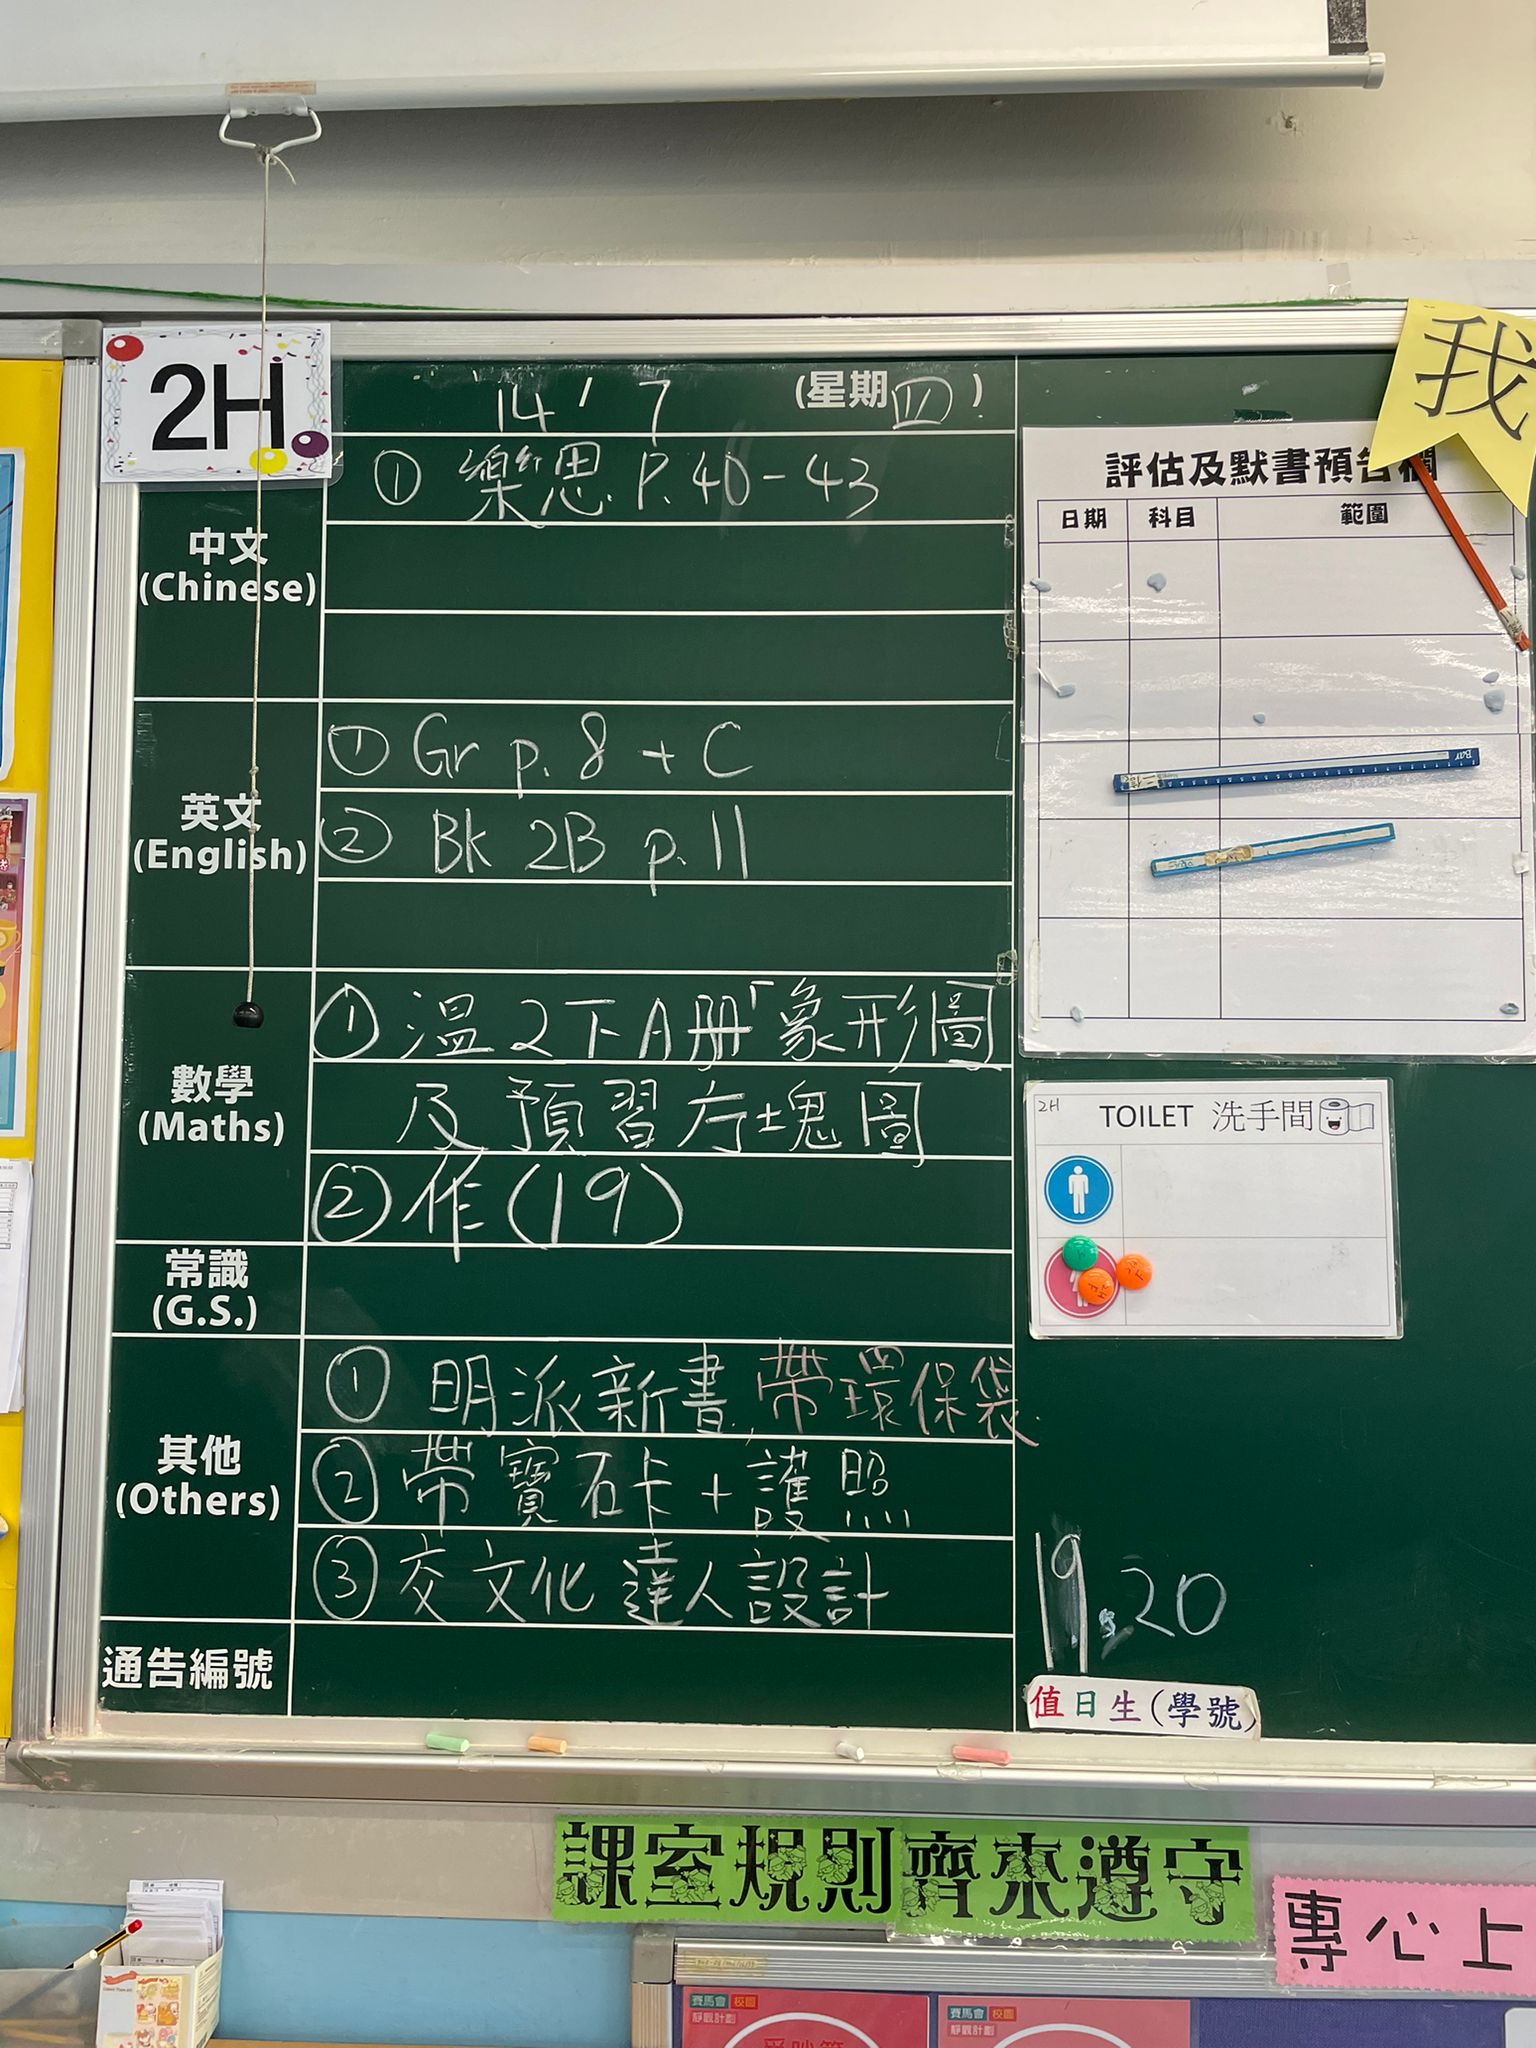 2H
14 / 7 (星期四)
中文
(Chinese)
① 樂思 P. 40 - 43
英文
(English)
① Gr p. 8 + C
② BK 2B p. 11
數學
(Maths)
① 溫 2下A冊「象形圖
及預習方塊圖
② 作(19)
常識
(G.S.)
其他
(Others)
① 明派新書, 帶環保袋.
② 帶寶石卡 + 護照
③ 交文化達人設計
通告編號
我
評估及默書預告欄
日期 科目 範圍
2H TOILET 洗手間
19. 20
值日生(學號)
課室規則齊來遵守
專心上
賽馬會 校園
靜觀計劃
賽馬會 校園
靜觀計劃